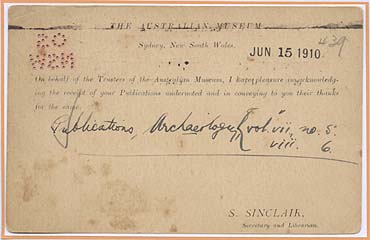 THE AUSTRALIAN MUSEUM
Sydney, New South Wales,
JUN 15 1910
On behalf of the Trustees of the Australian Museum, I have pleasure in acknowledg-
ing the receipt of your Publications undernoted and in conveying to you their thanks
for the same.
Publications, Archaeology vol. vii, no. 5.
viii. 6.
S. SINCLAIR,
Secretary and Librarian.